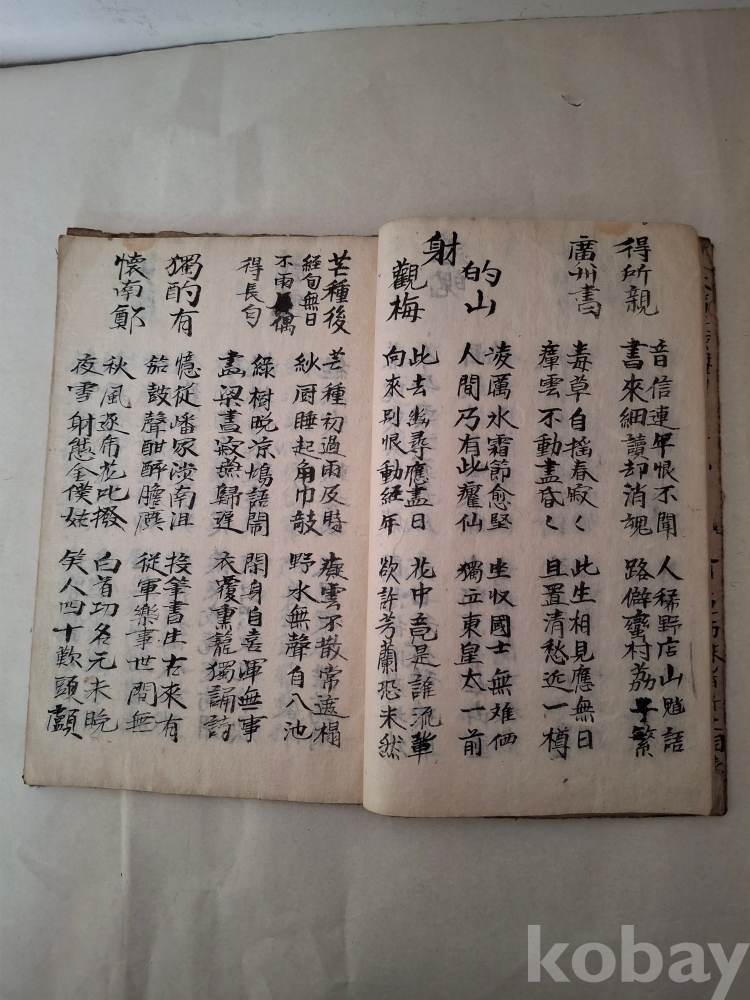 得所親
廣州書
音信連年恨不聞
書來細讀却消魂
人稀野店山魈語
路僻蠻村荔子繁
毒草自搖春寂く
瘴雲不動晝昏く
此生相見應無日
且置清愁近一樽
射的山
觀梅
凌厲氷霜節愈堅
人間乃有此癯仙
坐收國士無雙価
獨立東皇太一前
此去幽尋應盡日
向來別恨動經年
花中竟是誰流輩
欲許芳蘭恐未然
芒種後
經旬無日
不雨偶
得長句
芒種初過雨及時
紗厨睡起角巾攲
癡雲不散常遮榻
野水無聲自入池
綠樹晚涼塢語鬧
畵梁晝寂燕歸遲
閑身自喜渾無事
衣覆熏籠獨誦詩
獨酌有
懷南鄭
憶從嶓冢涉南沮
笳鼓聲酣醉膽麤
投筆書生古來有
從軍樂事世間無
秋風逐虎花叱撥
夜雪射熊金僕姑
白首功名元未晚
笑人四十歎頭顱
kobay